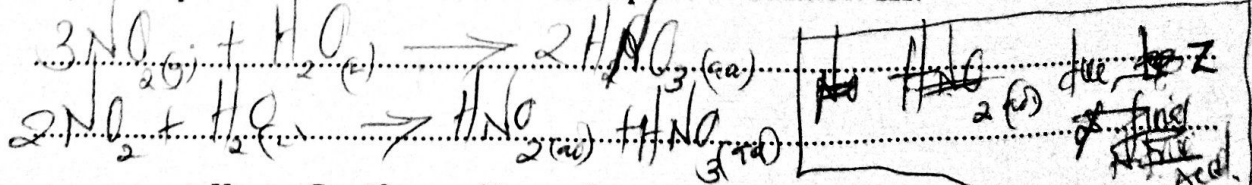 3NO₂(g) + H₂O(l) → 2HNO₃(aq)
2NO₂ + H₂O(l) → HNO₂(aq) + HNO₃(aq)
HNO₂(aq) due to Z
Acid.